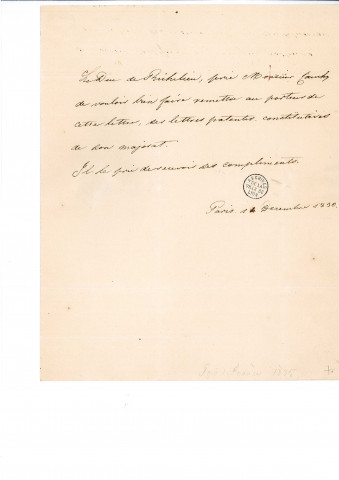 Le Duc de Richelieu, prie Monsieur Cauchy
de vouloir bien faire remettre au porteur de
cette lettre, ses lettres patentes, constitutives
de son majorat.
Il le prie de recevoir ses compliments.
Paris Décembre 1830.